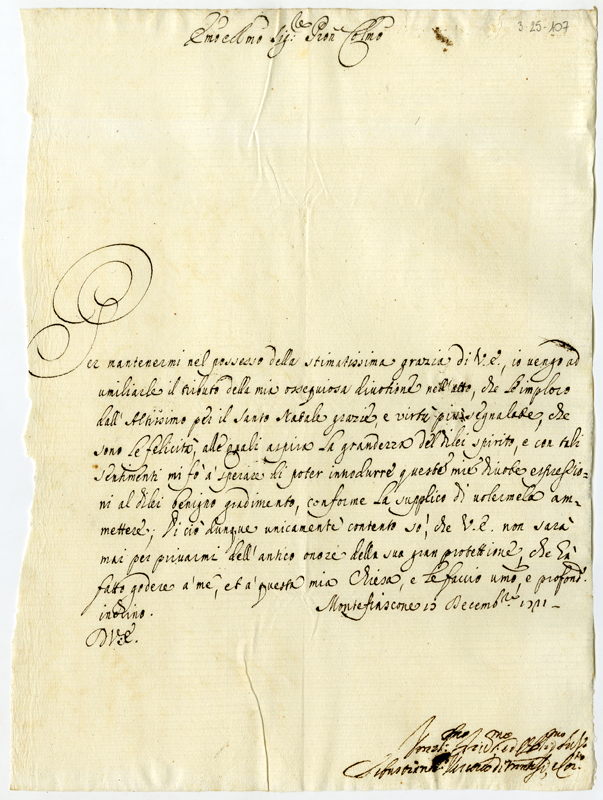 3-25-107
Emo e Rmo Sig.re Pron Colmo
Per mantenermi nel possesso della stimatissima grazia di V.E., io vengo ad
umiliarle il tributo della mia ossequiosa divotione nell'atto, che le imploro
dall'Altissimo per il Santo Natale grazie, e virtù più segnalate, che
sono le felicità, alle quali aspira la grandezza del di lei spirito, e con tali
sentimenti mi fò à sperare di poter introdurre queste mie divote espressio-
ni al di lei benigno gradimento, conforme la supplico di volermele am-
mettere; Di ciò dunque unicamente contento sò, che V.E. non sarà
mai per privarmi dell'antico onore della sua gran protettione, che hà
fatto godere à me, et à questa mia Chiesa, e le faccio umo, e profond.o
inchino. Montefiascone 15 Decemb.re 1711 -
D V.E.
Sebastiano Vescovo di Montef., e Cor.to